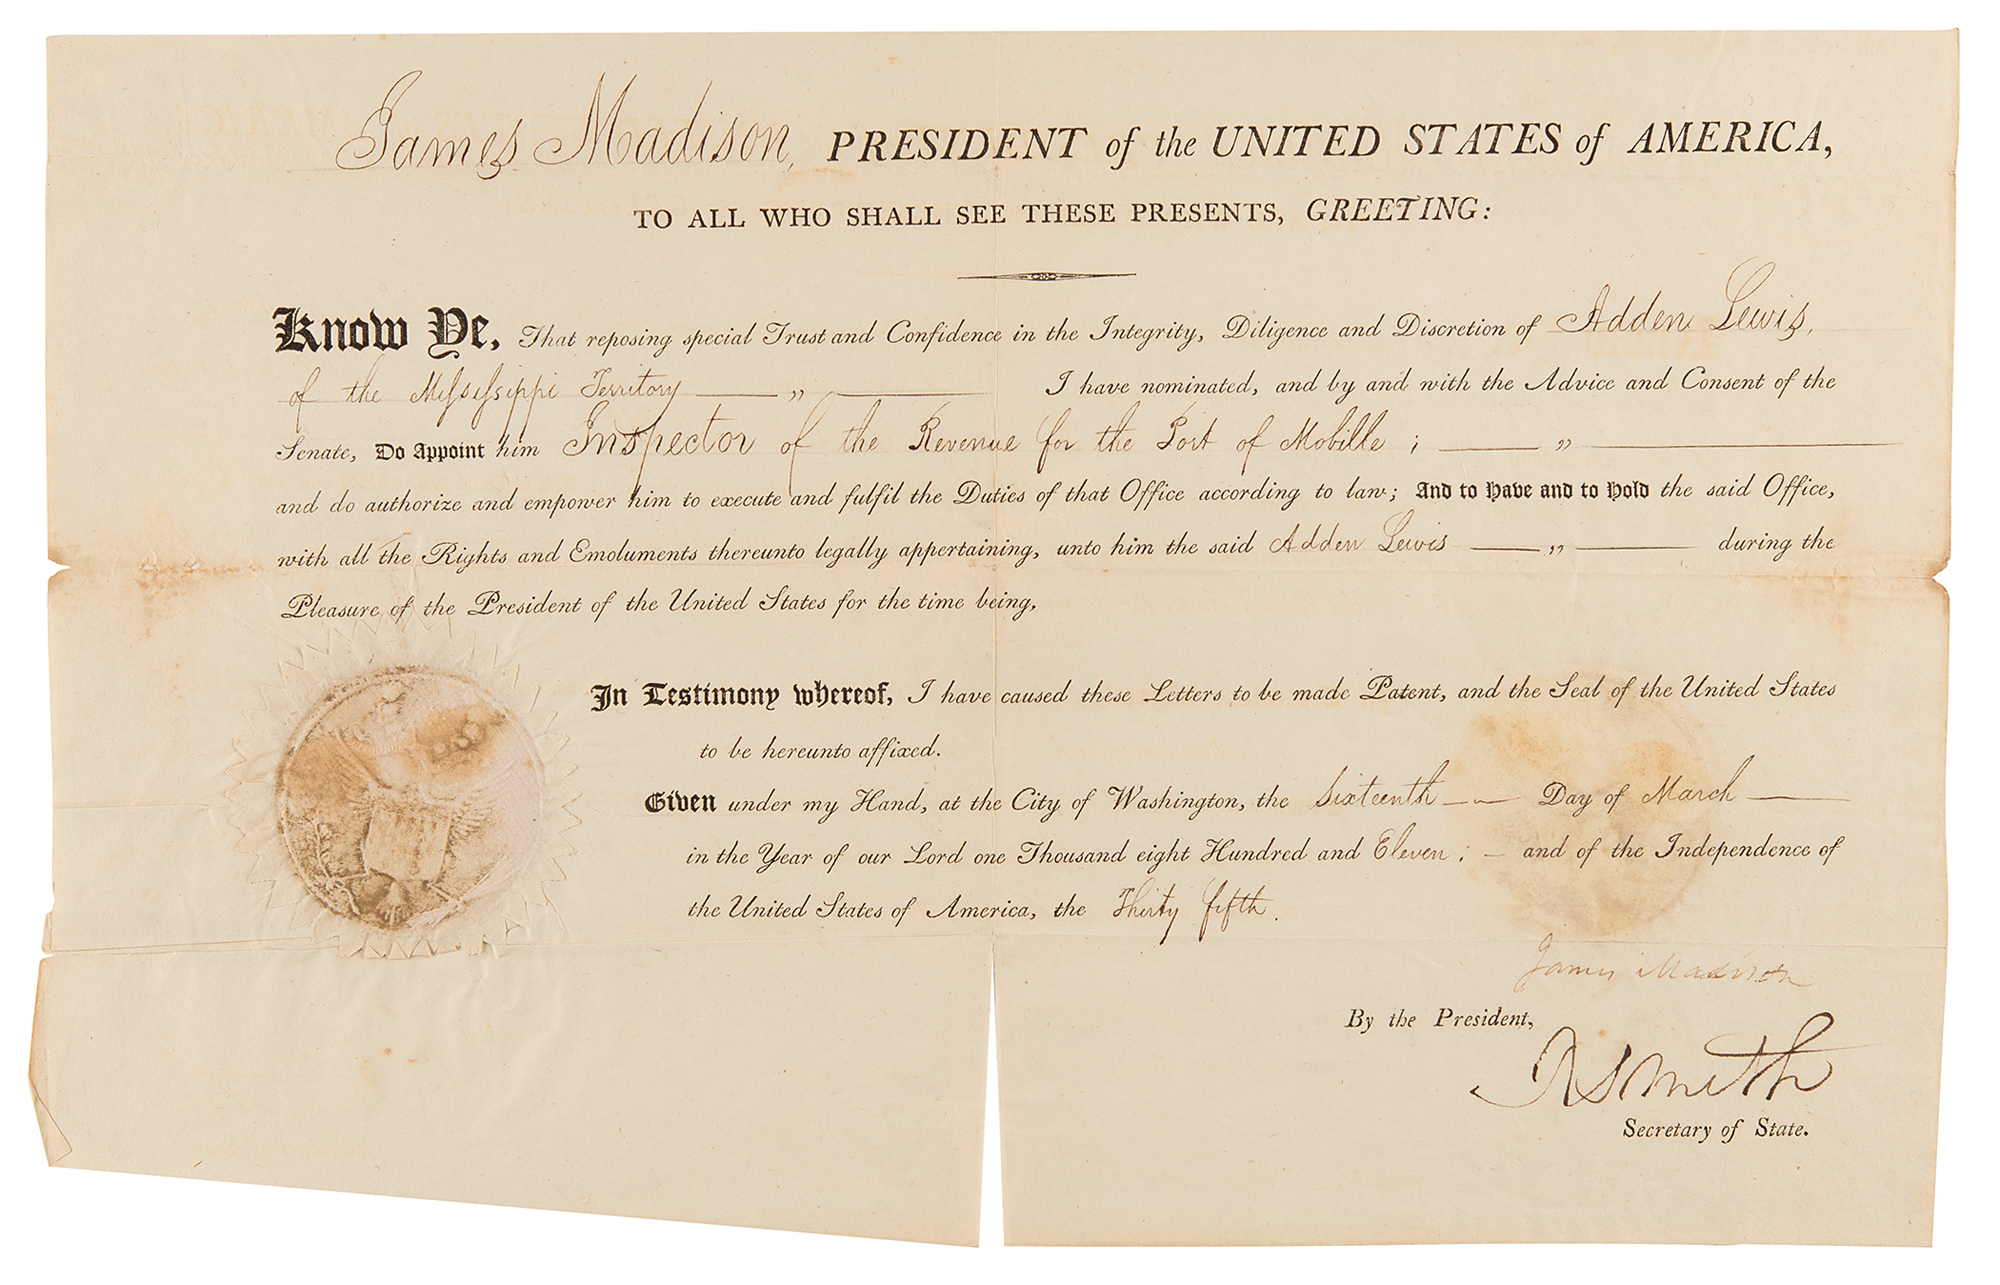 James Madison, PRESIDENT of the UNITED STATES of AMERICA,
TO ALL WHO SHALL SEE THESE PRESENTS, GREETING:
Know Ye, That reposing special Trust and Confidence in the Integrity, Diligence and Discretion of Adden Lewis,
of the Mississippi Territory — „ — I have nominated, and by and with the Advice and Consent of the
Senate, Do Appoint him Inspector of the Revenue for the Port of Mobille; — „ —
and do authorize and empower him to execute and fulfil the Duties of that Office according to law; And to Have and to Hold the said Office,
with all the Rights and Emoluments thereunto legally appertaining, unto him the said Adden Lewis — „ — during the
Pleasure of the President of the United States for the time being,
In Testimony whereof, I have caused these Letters to be made Patent, and the Seal of the United States
to be hereunto affixed.
Given under my Hand, at the City of Washington, the Sixteenth — Day of March —
in the Year of our Lord one Thousand eight Hundred and Eleven; — and of the Independence of
the United States of America, the Thirty fifth.
James Madison
By the President,
R Smith
Secretary of State.